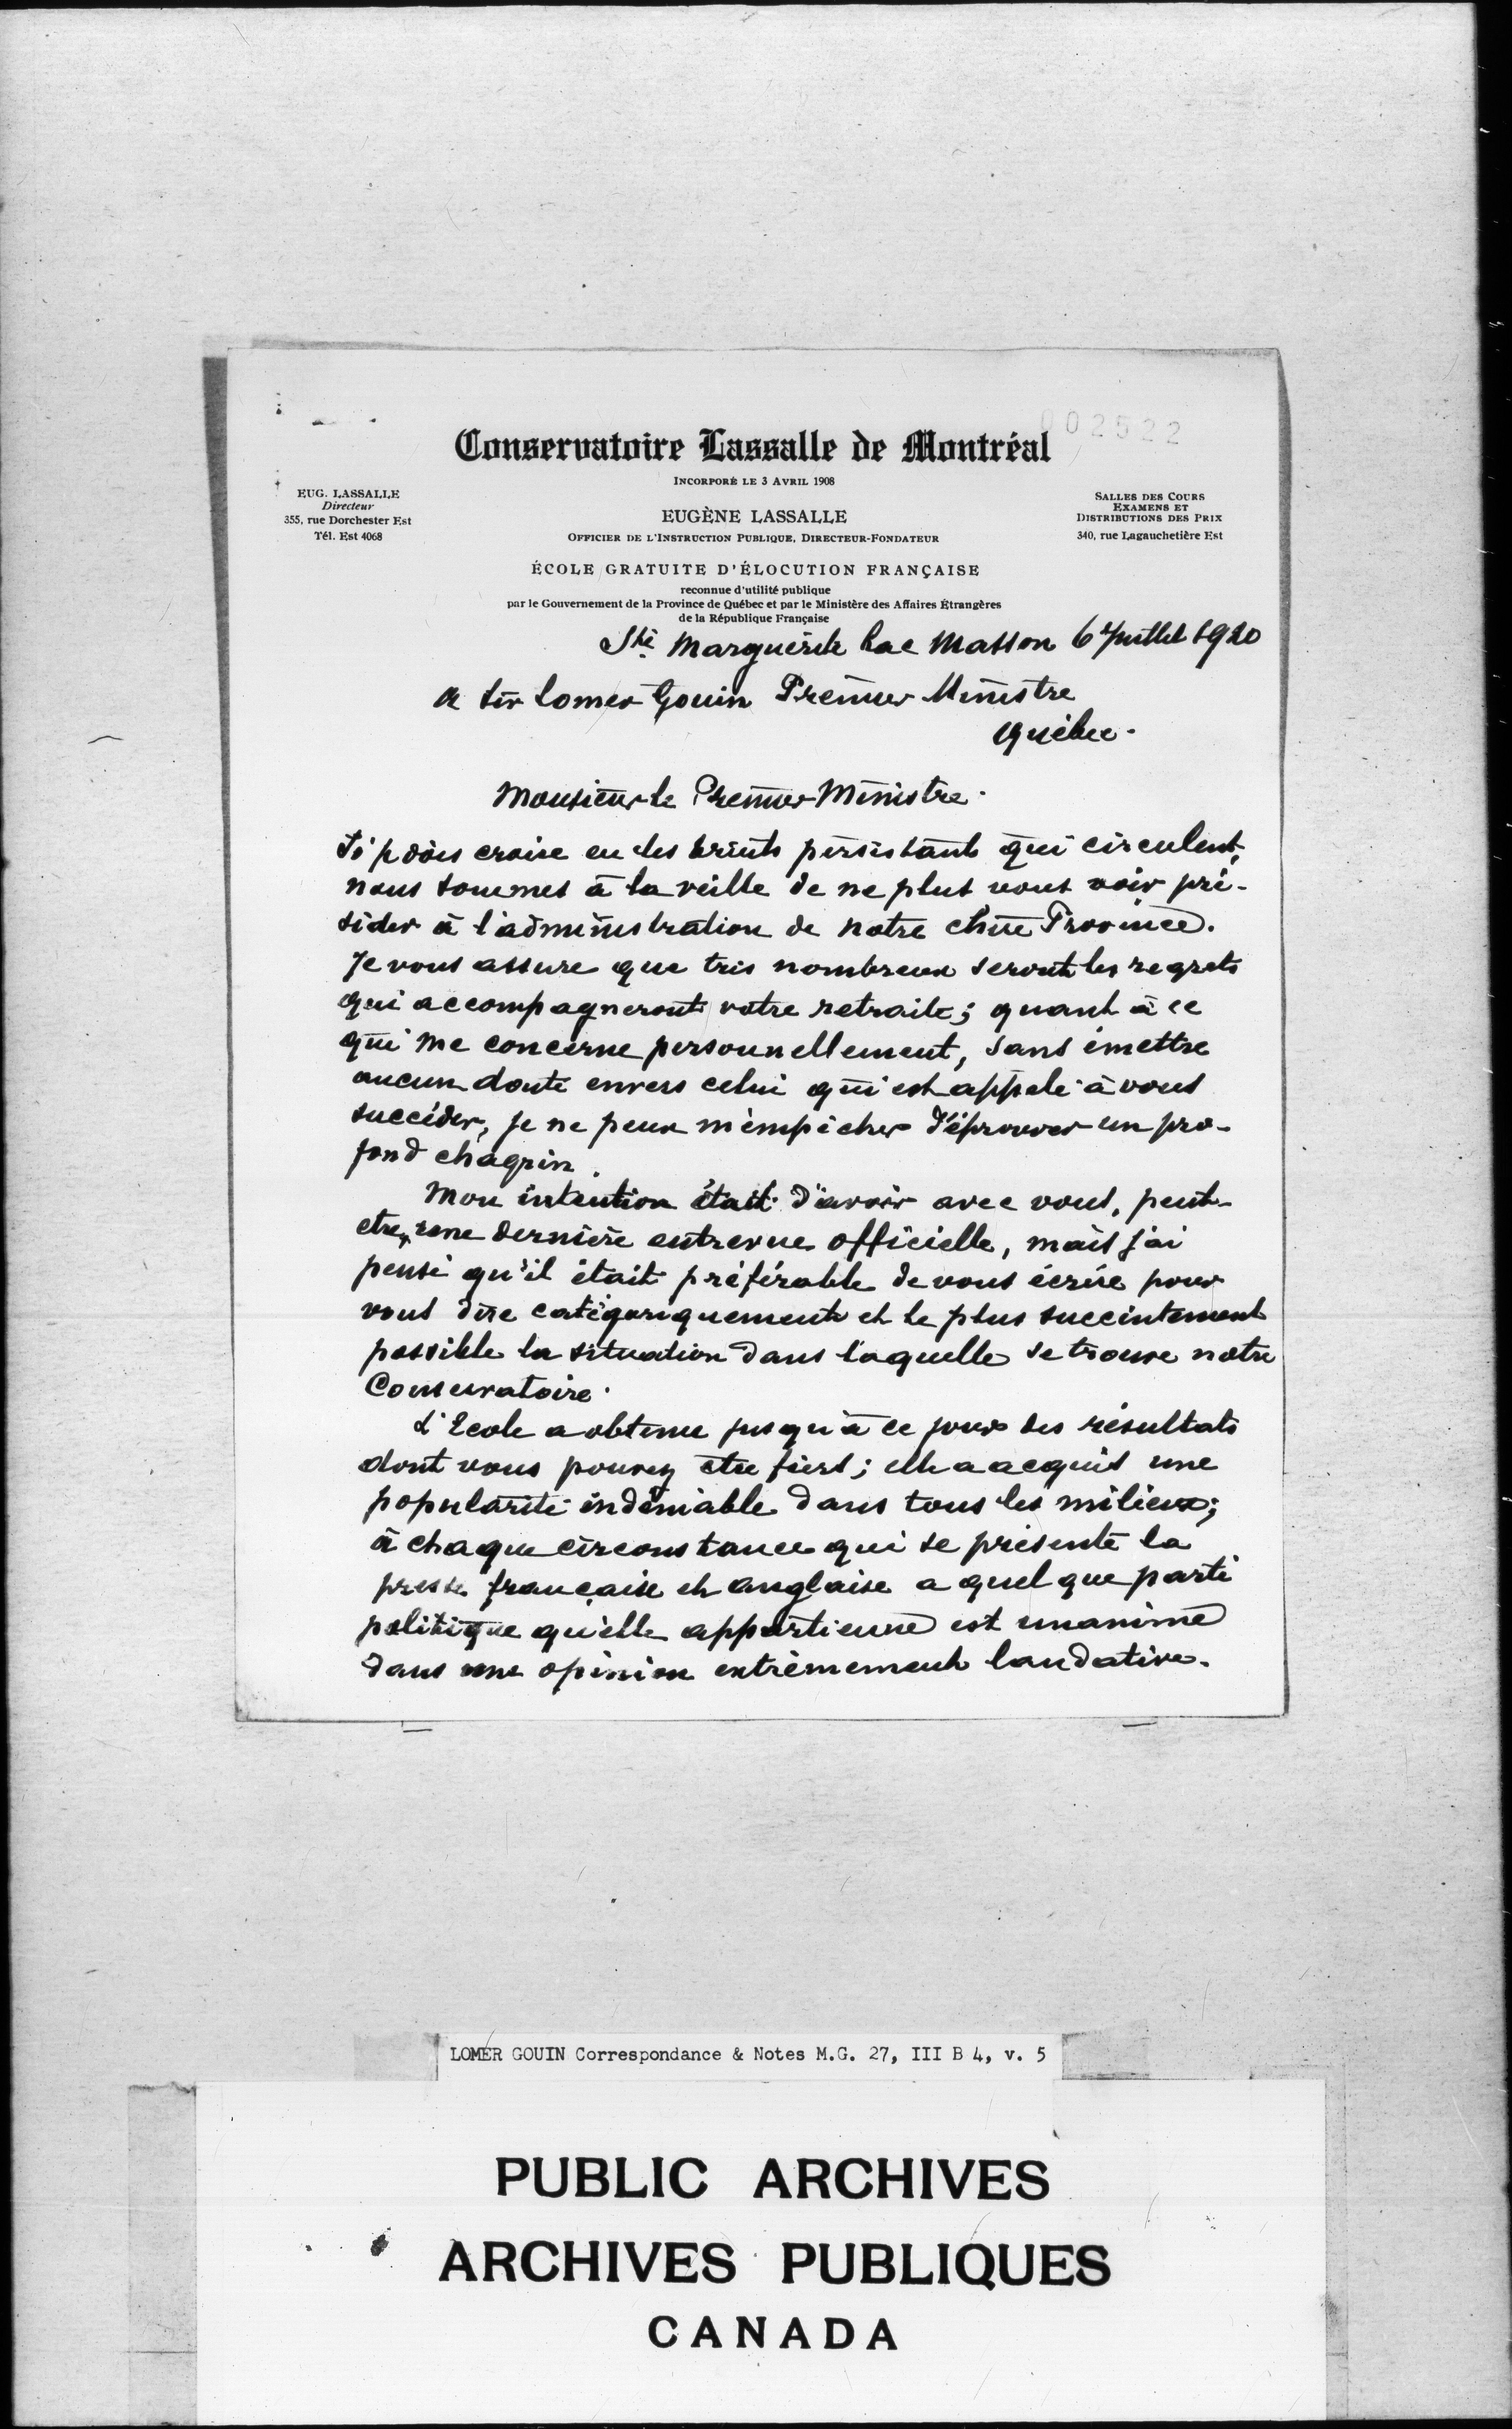 002522
Conservatoire Lassalle de Montréal
INCORPORÉ LE 3 AVRIL 1908
EUG. LASSALLE
Directeur
355, rue Dorchester Est
Tél. Est 4068
EUGÈNE LASSALLE
OFFICIER DE L'INSTRUCTION PUBLIQUE, DIRECTEUR-FONDATEUR
SALLES DES COURS
EXAMENS ET
DISTRIBUTIONS DES PRIX
340, rue Lagauchetière Est
ÉCOLE GRATUITE D'ÉLOCUTION FRANÇAISE
reconnue d'utilité publique
par le Gouvernement de la Province de Québec et par le Ministère des Affaires Étrangères
de la République Française
Ste Marguerite Lac Masson 6 Juillet 1920
A Sir Lomer Gouin Premier Ministre
Québec.
Monsieur le Premier Ministre.
Si je dois croire en les bruits persistants qui circulent,
nous sommes à la veille de ne plus vous voir pré-
sider à l'administration de notre chère Province.
Je vous assure que très nombreux seront les regrets
qui accompagneront votre retraite; quant à ce
qui me concerne personnellement, sans émettre
aucun doute envers celui qui est appelé à vous
succéder, je ne peux m'empêcher d'éprouver un pro-
fond chagrin.
Mon intention était d'avoir avec vous, peut-
etre, une dernière entrevue officielle, mais j'ai
pensé qu'il était préférable de vous écrire pour
vous dire catégoriquement et le plus succintement
possible la situation dans laquelle se trouve notre
Conservatoire.
L'Ecole a obtenu jusqu'à ce jour des résultats
dont vous pouvez être fiers; elle a acquis une
popularité indéniable dans tous les milieux;
à chaque circonstance qui se présente la
presse française et anglaise a quelque parti
politique qu'elle appartienne est unanime
dans une opinion extrèmement laudative.
LOMER GOUIN Correspondance & Notes M.G. 27, III B 4, v. 5
PUBLIC ARCHIVES
ARCHIVES PUBLIQUES
CANADA